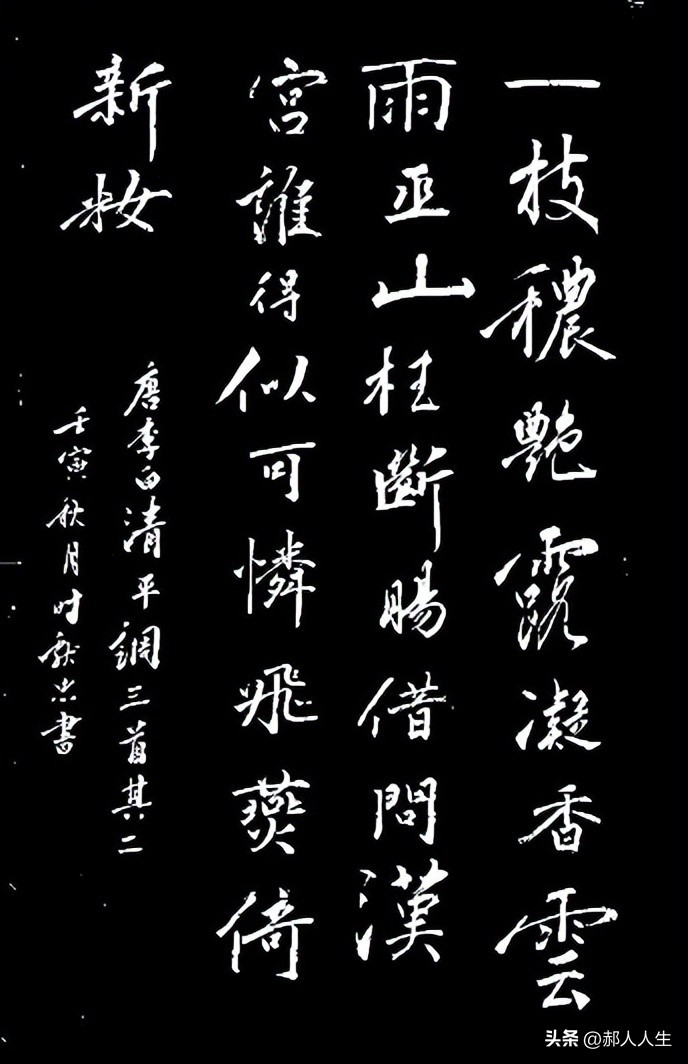 一枝穠艷露凝香雲
雨巫山枉斷腸借問漢
宮誰得似可憐飛燕倚
新妝
唐李白清平調三首其二
壬寅秋月时献忠書
头条 @郝人人生